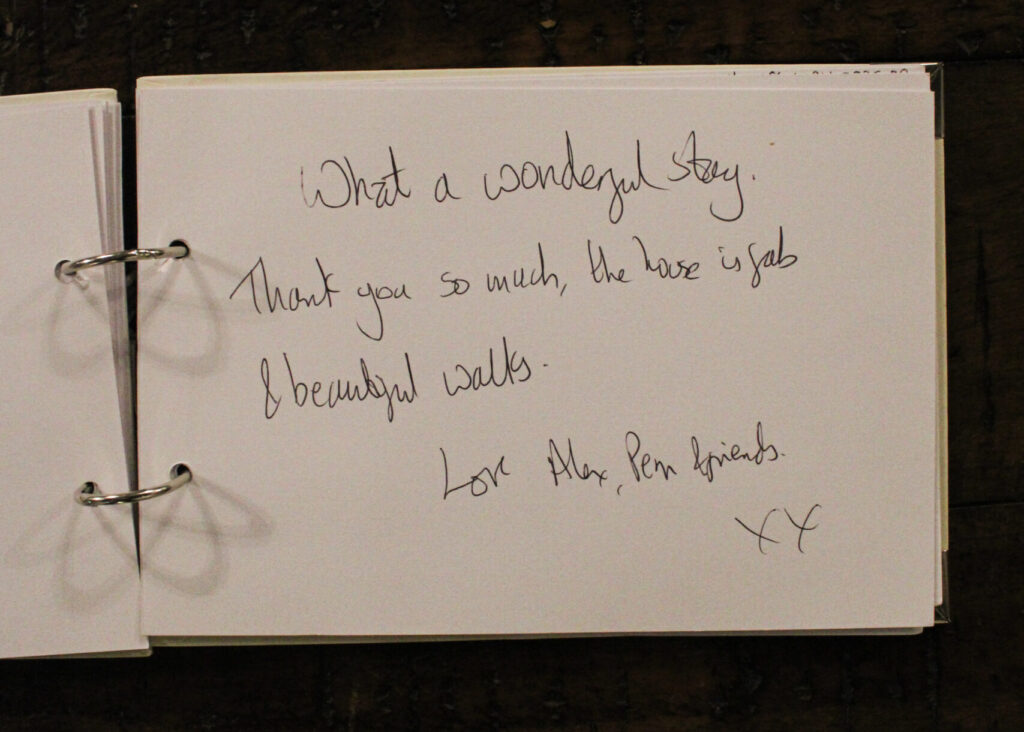 What a wonderful stay.
Thank you so much, the house is fab
& beautiful walks.
Love Alex, Pem & friends.
XX